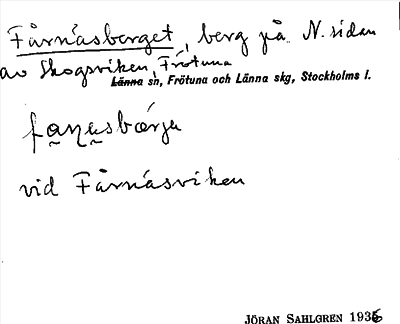 Fårnäsberget, berg på N. sidan
av Skogsviken, Frötuna
Länna sn, Frötuna och Länna skg, Stockholms l.
fa̰ṇa̰sbærju
vid Fårnäsviken
JÖRAN SAHLGREN 1936